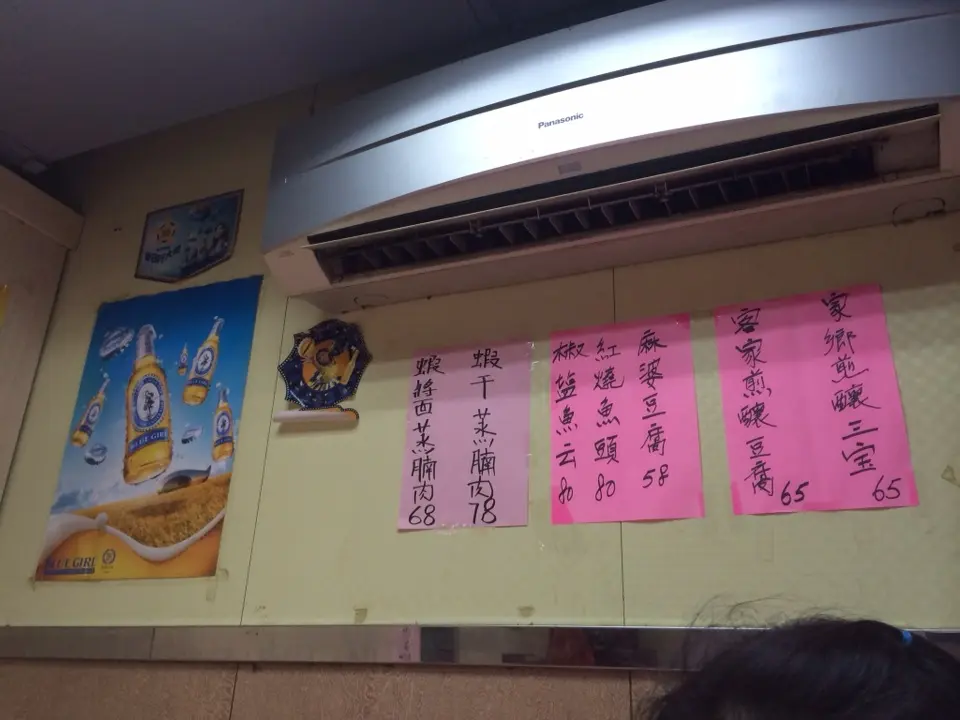 Panasonic
BLUE GIRL
BLUE GIRL
蝦干蒸腩肉
78
蝦將面蒸腩肉
68
麻婆豆腐
58
紅燒魚頭
80
椒塩魚云
80
家鄉煎釀三宝
65
客家煎釀豆腐
65